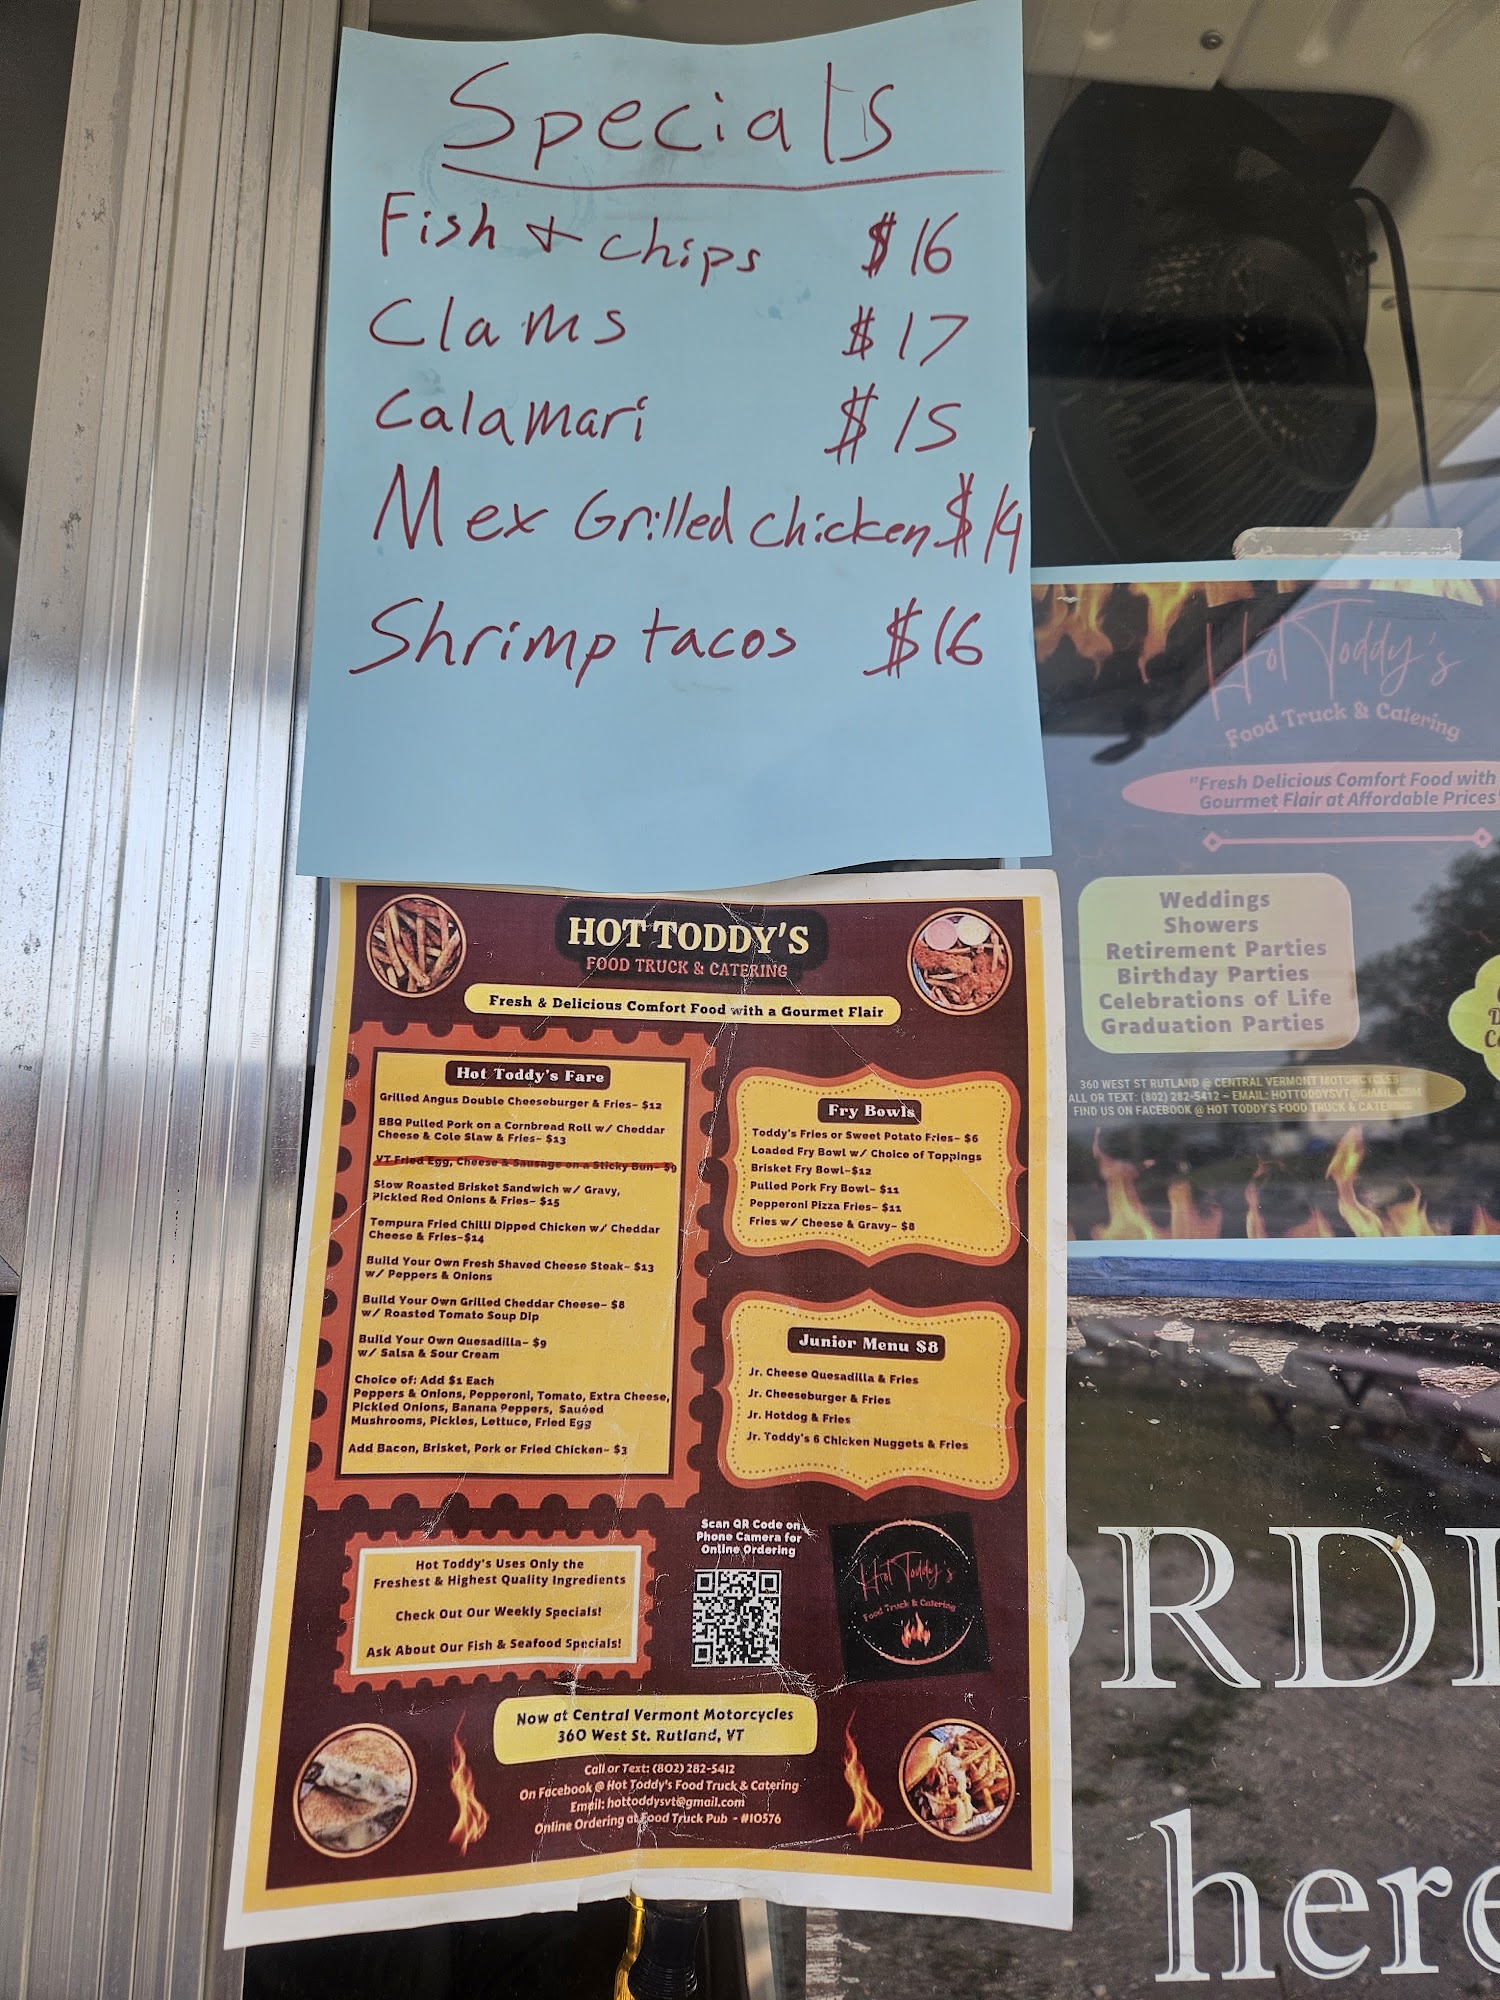 Specials
Fish + chips $16
Clams $17
Calamari $15
Mex Grilled chicken $14
Shrimp tacos $16
HOT TODDY'S
FOOD TRUCK & CATERING
Fresh & Delicious Comfort Food with a Gourmet Flair
Hot Toddy's Fare
Grilled Angus Double Cheeseburger & Fries- $12
BBQ Pulled Pork on a Cornbread Roll w/ Cheddar
Cheese & Cole Slaw & Fries- $13
VT Fried Egg, Cheese & Sausage on a Sticky Bun- $9
Slow Roasted Brisket Sandwich w/ Gravy,
Pickled Red Onions & Fries- $15
Tempura Fried Chilli Dipped Chicken w/ Cheddar
Cheese & Fries-$14
Build Your Own Fresh Shaved Cheese Steak- $13
w/ Peppers & Onions
Build Your Own Grilled Cheddar Cheese- $8
w/ Roasted Tomato Soup Dip
Build Your Own Quesadilla- $9
w/ Salsa & Sour Cream
Choice of: Add $1 Each
Peppers & Onions, Pepperoni, Tomato, Extra Cheese,
Pickled Onions, Banana Peppers, Sauteed
Mushrooms, Pickles, Lettuce, Fried Egg
Add Bacon, Brisket, Pork or Fried Chicken- $3
Fry Bowls
Toddy's Fries or Sweet Potato Fries- $6
Loaded Fry Bowl w/ Choice of Toppings
Brisket Fry Bowl-$12
Pulled Pork Fry Bowl- $11
Pepperoni Pizza Fries- $11
Fries w/ Cheese & Gravy- $8
Junior Menu $8
Jr. Cheese Quesadilla & Fries
Jr. Cheeseburger & Fries
Jr. Hotdog & Fries
Jr. Toddy's 6 Chicken Nuggets & Fries
Hot Toddy's Uses Only the
Freshest & Highest Quality Ingredients
Check Out Our Weekly Specials!
Ask About Our Fish & Seafood Specials!
Scan QR Code on
Phone Camera for
Online Ordering
Hot Toddy's
Food Truck & Catering
Now at Central Vermont Motorcycles
360 West St. Rutland, VT
Call or Text: (802) 282-5412
On Facebook @ Hot Toddy's Food Truck & Catering
Email: hottoddysvt@gmail.com
Online Ordering at Food Truck Pub - #10576
Hot Toddy's
Food Truck & Catering
"Fresh Delicious Comfort Food with
Gourmet Flair at Affordable Prices"
Weddings
Showers
Retirement Parties
Birthday Parties
Celebrations of Life
Graduation Parties
360 WEST ST RUTLAND @ CENTRAL VERMONT MOTORCYCLES
ALL OR TEXT: (802) 282-5412 ~ EMAIL: HOTTODDYSVT@GMAIL.COM
FIND US ON FACEBOOK @ HOT TODDY'S FOOD TRUCK & CATERING
ORDE
here